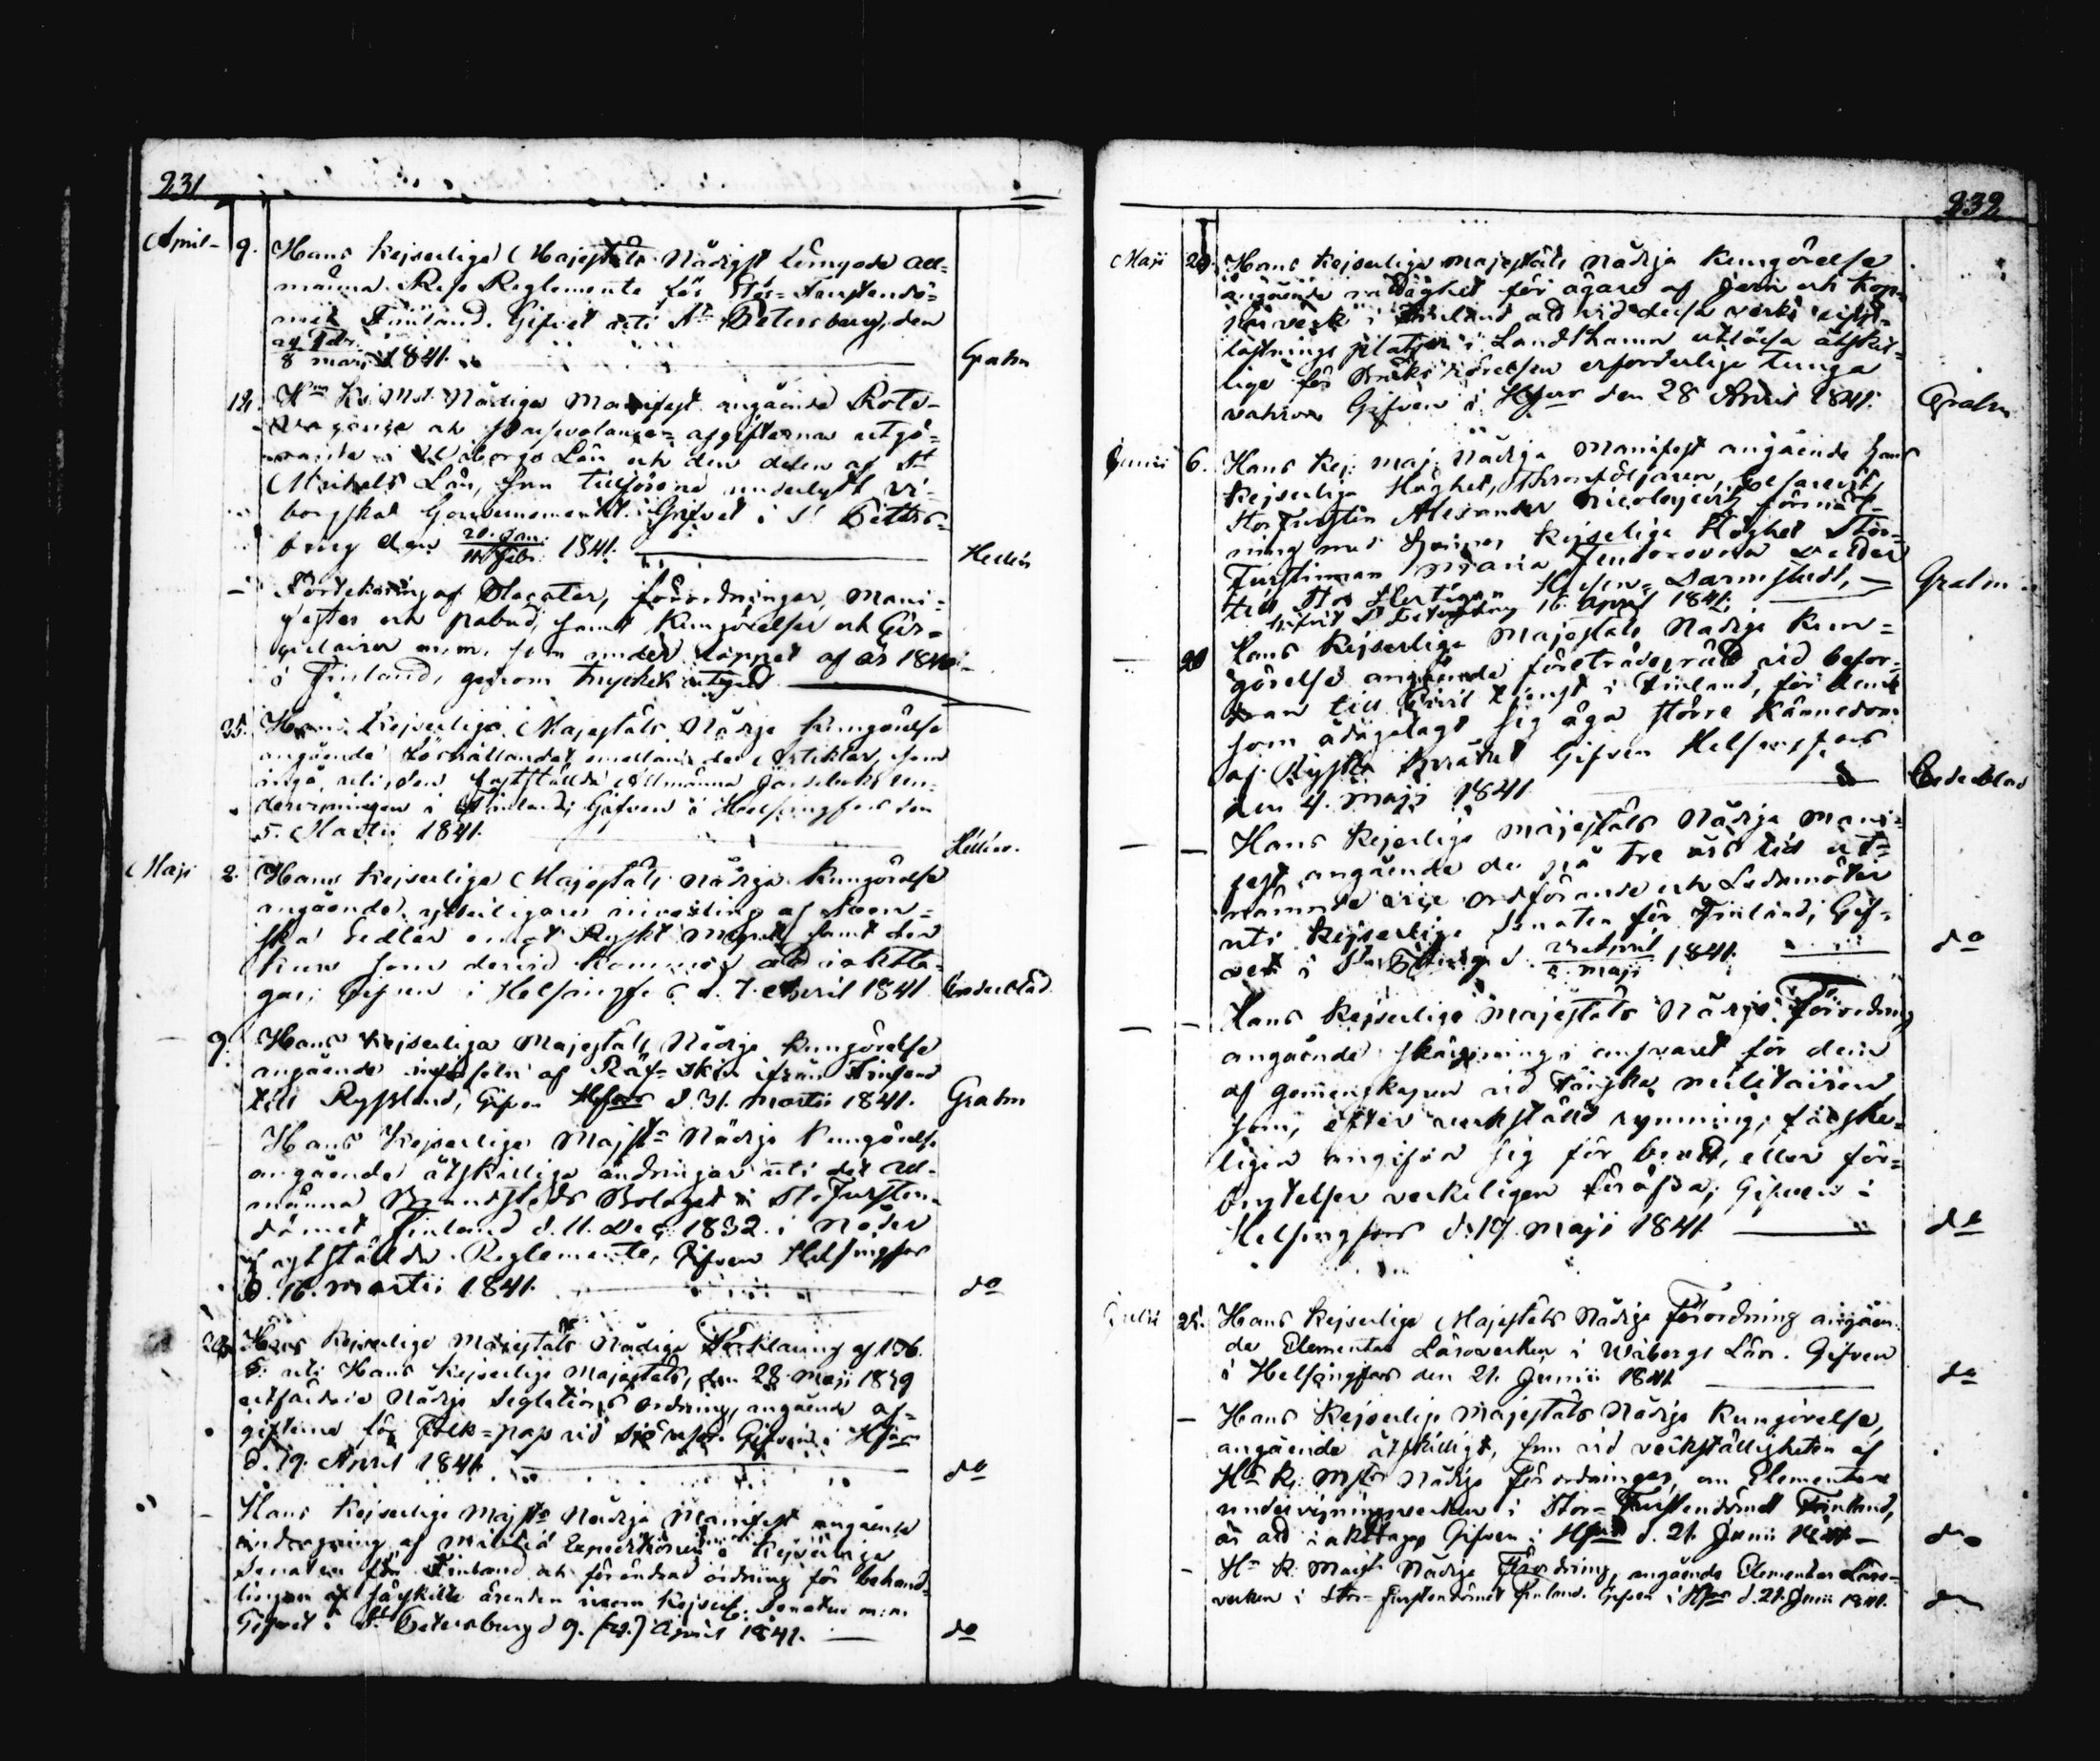 231
April 9. Hans Kejserliga Majestäts Nådigst all=
männa Reglemente för Stor-Furstendö=
met Finland. Gifvet uti St Petersburg, den
8 mars 1841. Gralm
12. Hs Ks. Mts Nådiga Manifest angående Rote-
afgifternas utgö=
rande i Wiborgs Län och den delen af St
Michels Län, som tillförene underlydt Vi-
borgska Gouvernementet. Gifvet i St Peters=
burg den 1841. Hellén
— Förtekning af Placater, förordningar, Mani=
fester och påbud, samt Kungörelser och Cir=
culairer m.m. som under loppet af år 1840
i Finland, genom trycket utgått
25. Hans Kejserliga Majestäts Nådiga Kungörelse
angående förhållandet emellan de Artiklar, som
ingå uti den fastställda Allmänna Jordeboks
i Finland; Gifven i Helsingfors den
5. Martii 1841. Hellén.
Maji 2. Hans Kejserliga Majestäts Nådiga Kungörelse
angående ytterligare invexling af Sven=
ska Sedlar emot Ryskt Mynt samt den
kurs som dervid kommer att iaktta=
gas; Gifven i Helsingfors d. 7. April 1841. Cederblad
9. Hans Kejserliga Majestäts Nådiga Kungörelse
angående införseln af Räf-skin ifrån Finland
till Ryssland, Gifven Hfors d. 31. Martii 1841. Gralm
Hans Kejserliga Majsts Nådiga Kungörelse
angående åtskilliga ändringar uti det all-
männa Brandstods Bolaget i St. Fursten-
dömet Finland d. 11. Dec. 1832. i Nåder
fastställda Reglemente, Gifven Helsingfors
d. 16. Martii 1841. do
Hans Kejserliga Majestäts Nådiga Förklaring af 156.
§. uti Hans Kejserliga Majestäts, den 28. Maji 1839
utfärdade Nådiga Seglations ordning, angående af=
gifterne för Folk=pass vid Sjöresor. Gifven i Hfors
d. 19. April 1841. do
— Hans Kejserliga Majsts Nådiga Manifest angående
indragning af Militie Expeditionen i Kejserliga
Senaten för Finland och förändrad ordning för behand=
lingen af särskilte ärenden inom Kejserl. Senaten m.m.
Gifvet i St Petersburg d 9. (21.) April 1841. do
232
Maji Hans Kejserliga Majestäts Nådiga Kungörelse
angående rättighet för ägare af Jern och Kop=
parverk i Finland att vid dessa verks upp=
lastnings platser i Landthamn utlösa åtskil=
lige för bruks rörelsen erforderliga tunga
vahror Gifven i Hfors den 28 April 1841. Gralm
Junii 6. Hans Kej: Maj: Nådiga Manifest angående Hans
Kejserliga Höghet, Thronföljaren, Cesarevitj,
Storfursten Alexander Nicolajevitj förmäl=
ning med Hennes Kejserliga Höghet Stor=
Furstinnan Maria Feodorovna Dotter
till Stor Hertigen Hessen= Darmstadt,
Gifvit St Petersburg 16. April 1841. Gralm
— 20 Hans Kejserliga Majestäts Nådiga Kun=
görelse angående företrädesrätt vid befor=
dran till Civil tjenst i Finland, för dem
som ådagalagt sig äga större Kännedom
af Ryska språket Gifven Helsingfors
den 4. Maji 1841. Cederblad
— — Hans Kejserliga Majestäts Nådiga Mani=
fest angående de på tre års tid ut=
nämnde vice ordförande och Ledamöter
uti Kejserliga Senaten för Finland; Gif=
vet i St 1841. do
— — Hans Kejserliga Majestäts Nådiga Förordning
angående skärpning i ansvaret för dem
af gemenskapen vid Finska militairen,
som, efter verkställd rymning, falske=
ligen angifva sig för brott, eller för=
brytelser verkeligen föröfva; Gifven i
Helsingfors d. 19. Maji 1841. do
Julii 25. Hans Kejserliga Majestäts Nådiga Förordning angåen
de Elementar Läroverken i Wiborgs Län. Gifven
i Helsingfors den 21. Junii 1841 do
— Hans Kejserliga Majestäts Nådiga Kungörelse,
angående åtskilligt, som vid verkställigheten af
Hs Kj: Mts Nådiga förordningar, om Elementar
undervisningsverken i Stor= Furstendömet Finland,
är att iakttaga Gifven i Hfors d. 21. Junii 1841 do
— Hs K. Majts Nådiga Förordning, angående Elementar Läro=
verken i Stor= Furstendömet Finland. Gifven i Hfors d. 21. Junii 1841. do